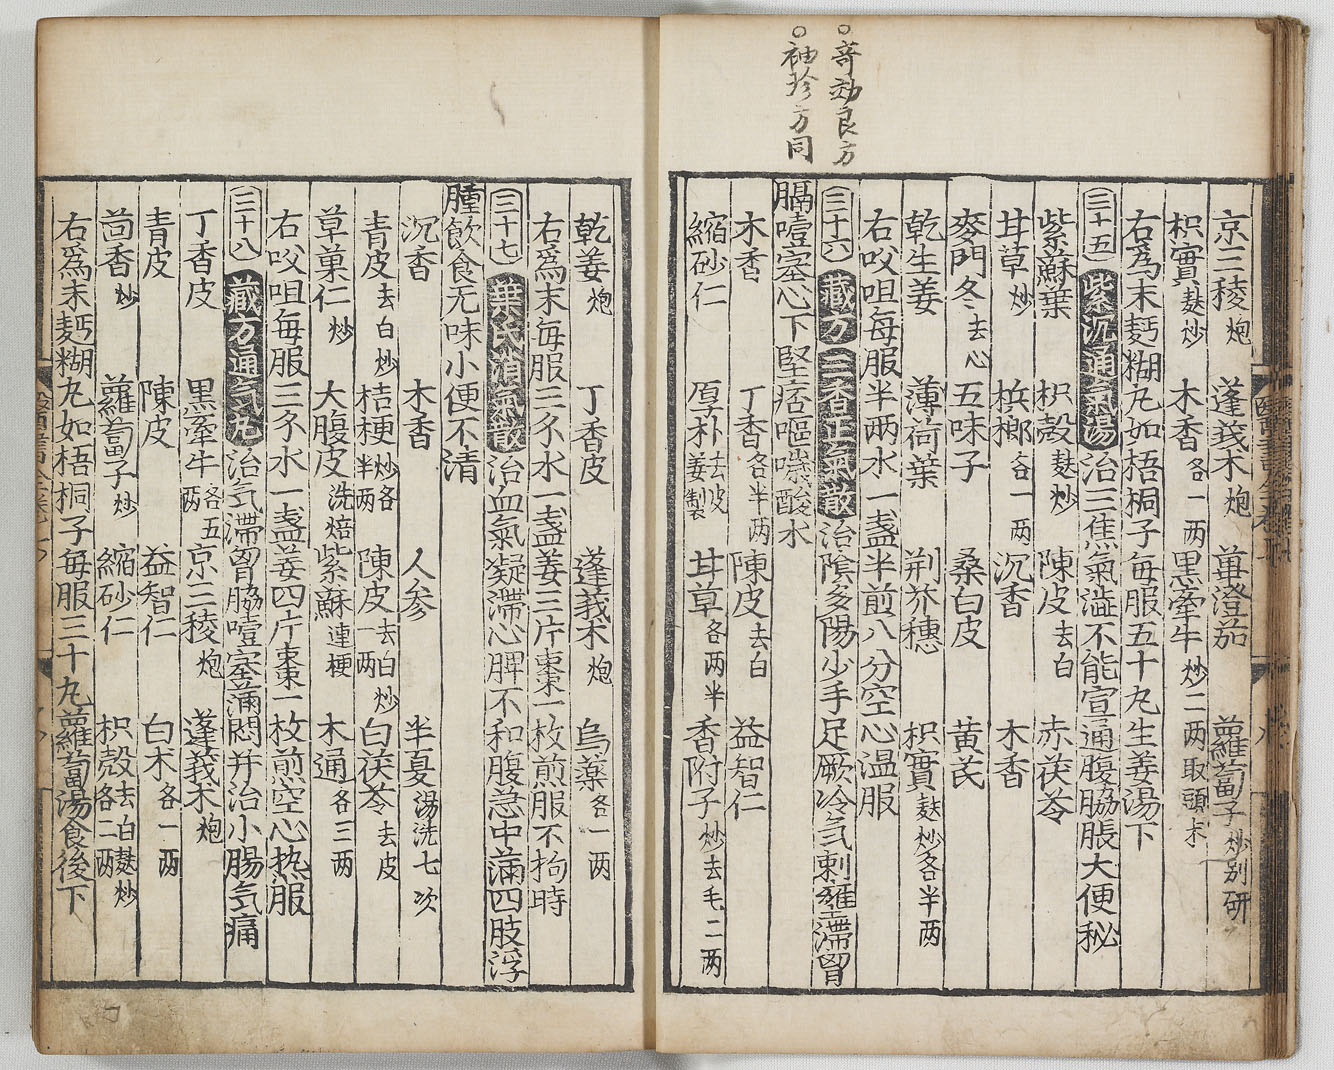 ○竒効良方
○袖珍方同
京三稜炮 蓬莪朮炮 蓽澄茄 蘿蔔子炒别研
枳實麸炒 木香各一两 黒牽牛炒二两取頭末
右為末麫糊丸如梧桐子每服五十丸生姜湯下
三十五 紫沉通氣湯 治三焦氣澁不能宣通腹脇脹大便秘
紫蘇葉 枳殻麸炒 陳皮去白 赤茯苓
甘草炒 梹榔各一两 沉香 木香
麥門冬去心 五味子 桑白皮 黄芪
乾生姜 薄荷葉 荆芥穗 枳實麸炒各半两
右㕮咀每服半两水一盞半煎八分空心温服
三十六 藏方 三香正氣散 治隂多陽少手足厥冷气刺壅滯胷
膈噎塞心下堅痞嘔噦酸水
木香 丁香各半两 陳皮去白 益智仁
縮砂仁 厚朴去皮姜製 甘草各两半 香附子炒去毛二两
乾姜炮 丁香皮 蓬莪朮炮 烏藥各一两
右為末每服三㕛水一盞姜三片棗一枚煎服不拘時
三十七 葉氏消氣散 治血氣凝滯心脾不和腹急中滿四肢浮
腫飲食无味小便不清
沉香 木香 人参 半夏湯洗七次
青皮去白炒 桔梗炒各半两 陳皮去白炒一两 白茯苓去皮
草菓仁炒 大腹皮洗焙 紫蘇連梗 木通各三两
右㕮咀每服三㕛水一盞姜四片棗一枚煎空心热服
三十八 藏方通气丸 治气滯胷脇噎塞滿悶并治小腸气痛
丁香皮 黒牽牛各五两 京三稜炮 蓬莪朮炮
青皮 陳皮 益智仁 白朮各一两
茴香炒 蘿蔔子炒 縮砂仁 枳殻去白麸炒各二两
右為末麫糊丸如梧桐子每服三十丸蘿蔔湯食後下